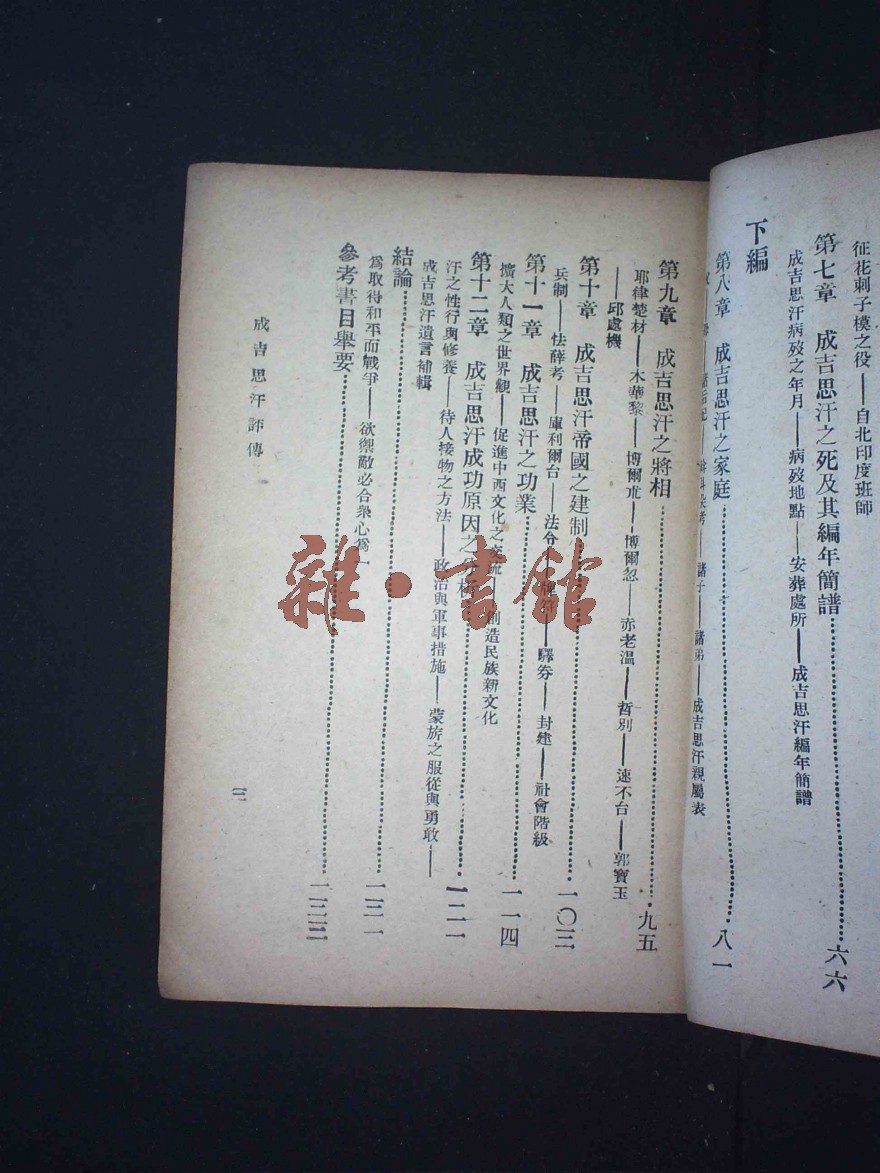 征花刺子模之役——自北印度班師
第七章 成吉思汗之死及其編年簡譜 六六
成吉思汗病歿之年月——病歿地點——安葬處所——成吉思汗編年簡譜
下編
第八章 成吉思汗之家庭 八一
諸子——諸弟——成吉思汗親屬表
第九章 成吉思汗之將相 九五
耶律楚材——木華黎——博爾朮——博爾忽——赤老溫——哲別——速不台——郭寶玉
——邱處機
第十章 成吉思汗帝國之建制 一〇三
兵制——怯薛考——庫利爾台——法令——驛劵——封建——社會階級
第十一章 成吉思汗之功業 一一四
擴大人類之世界觀——促進中西文化之交流——創造民族新文化
第十二章 成吉思汗成功原因之分析 一二一
汗之性行與修養——待人接物之方法——政治與軍事措施——蒙族之服從與勇敢——
成吉思汗遺言補輯
結論 一三一
爲取得和平而戰爭——欲禦敵必合衆心爲一
參考書目舉要
成吉思汗評傳
三
雜·書館